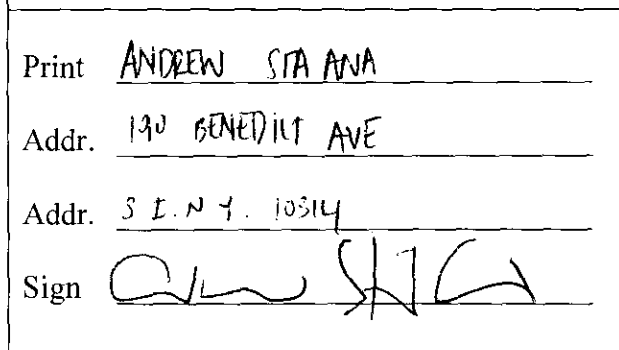 Print ANDREW STA ANA
Addr. 190 BENEDICT AVE
Addr. S I. N Y. 10314
Sign